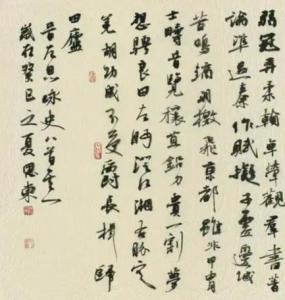 弱冠弄柔翰卓犖觀群書著
論準過秦作賦擬子虛邊城
苦鳴鏑羽檄飛京都雖非甲冑
士疇昔覽穰苴鉛刀貴一割夢
想騁良圖左眄澄江湘右盼定
羌胡功成不受爵長揖歸
田廬
左思咏史八首之一
歲在癸巳之夏思東